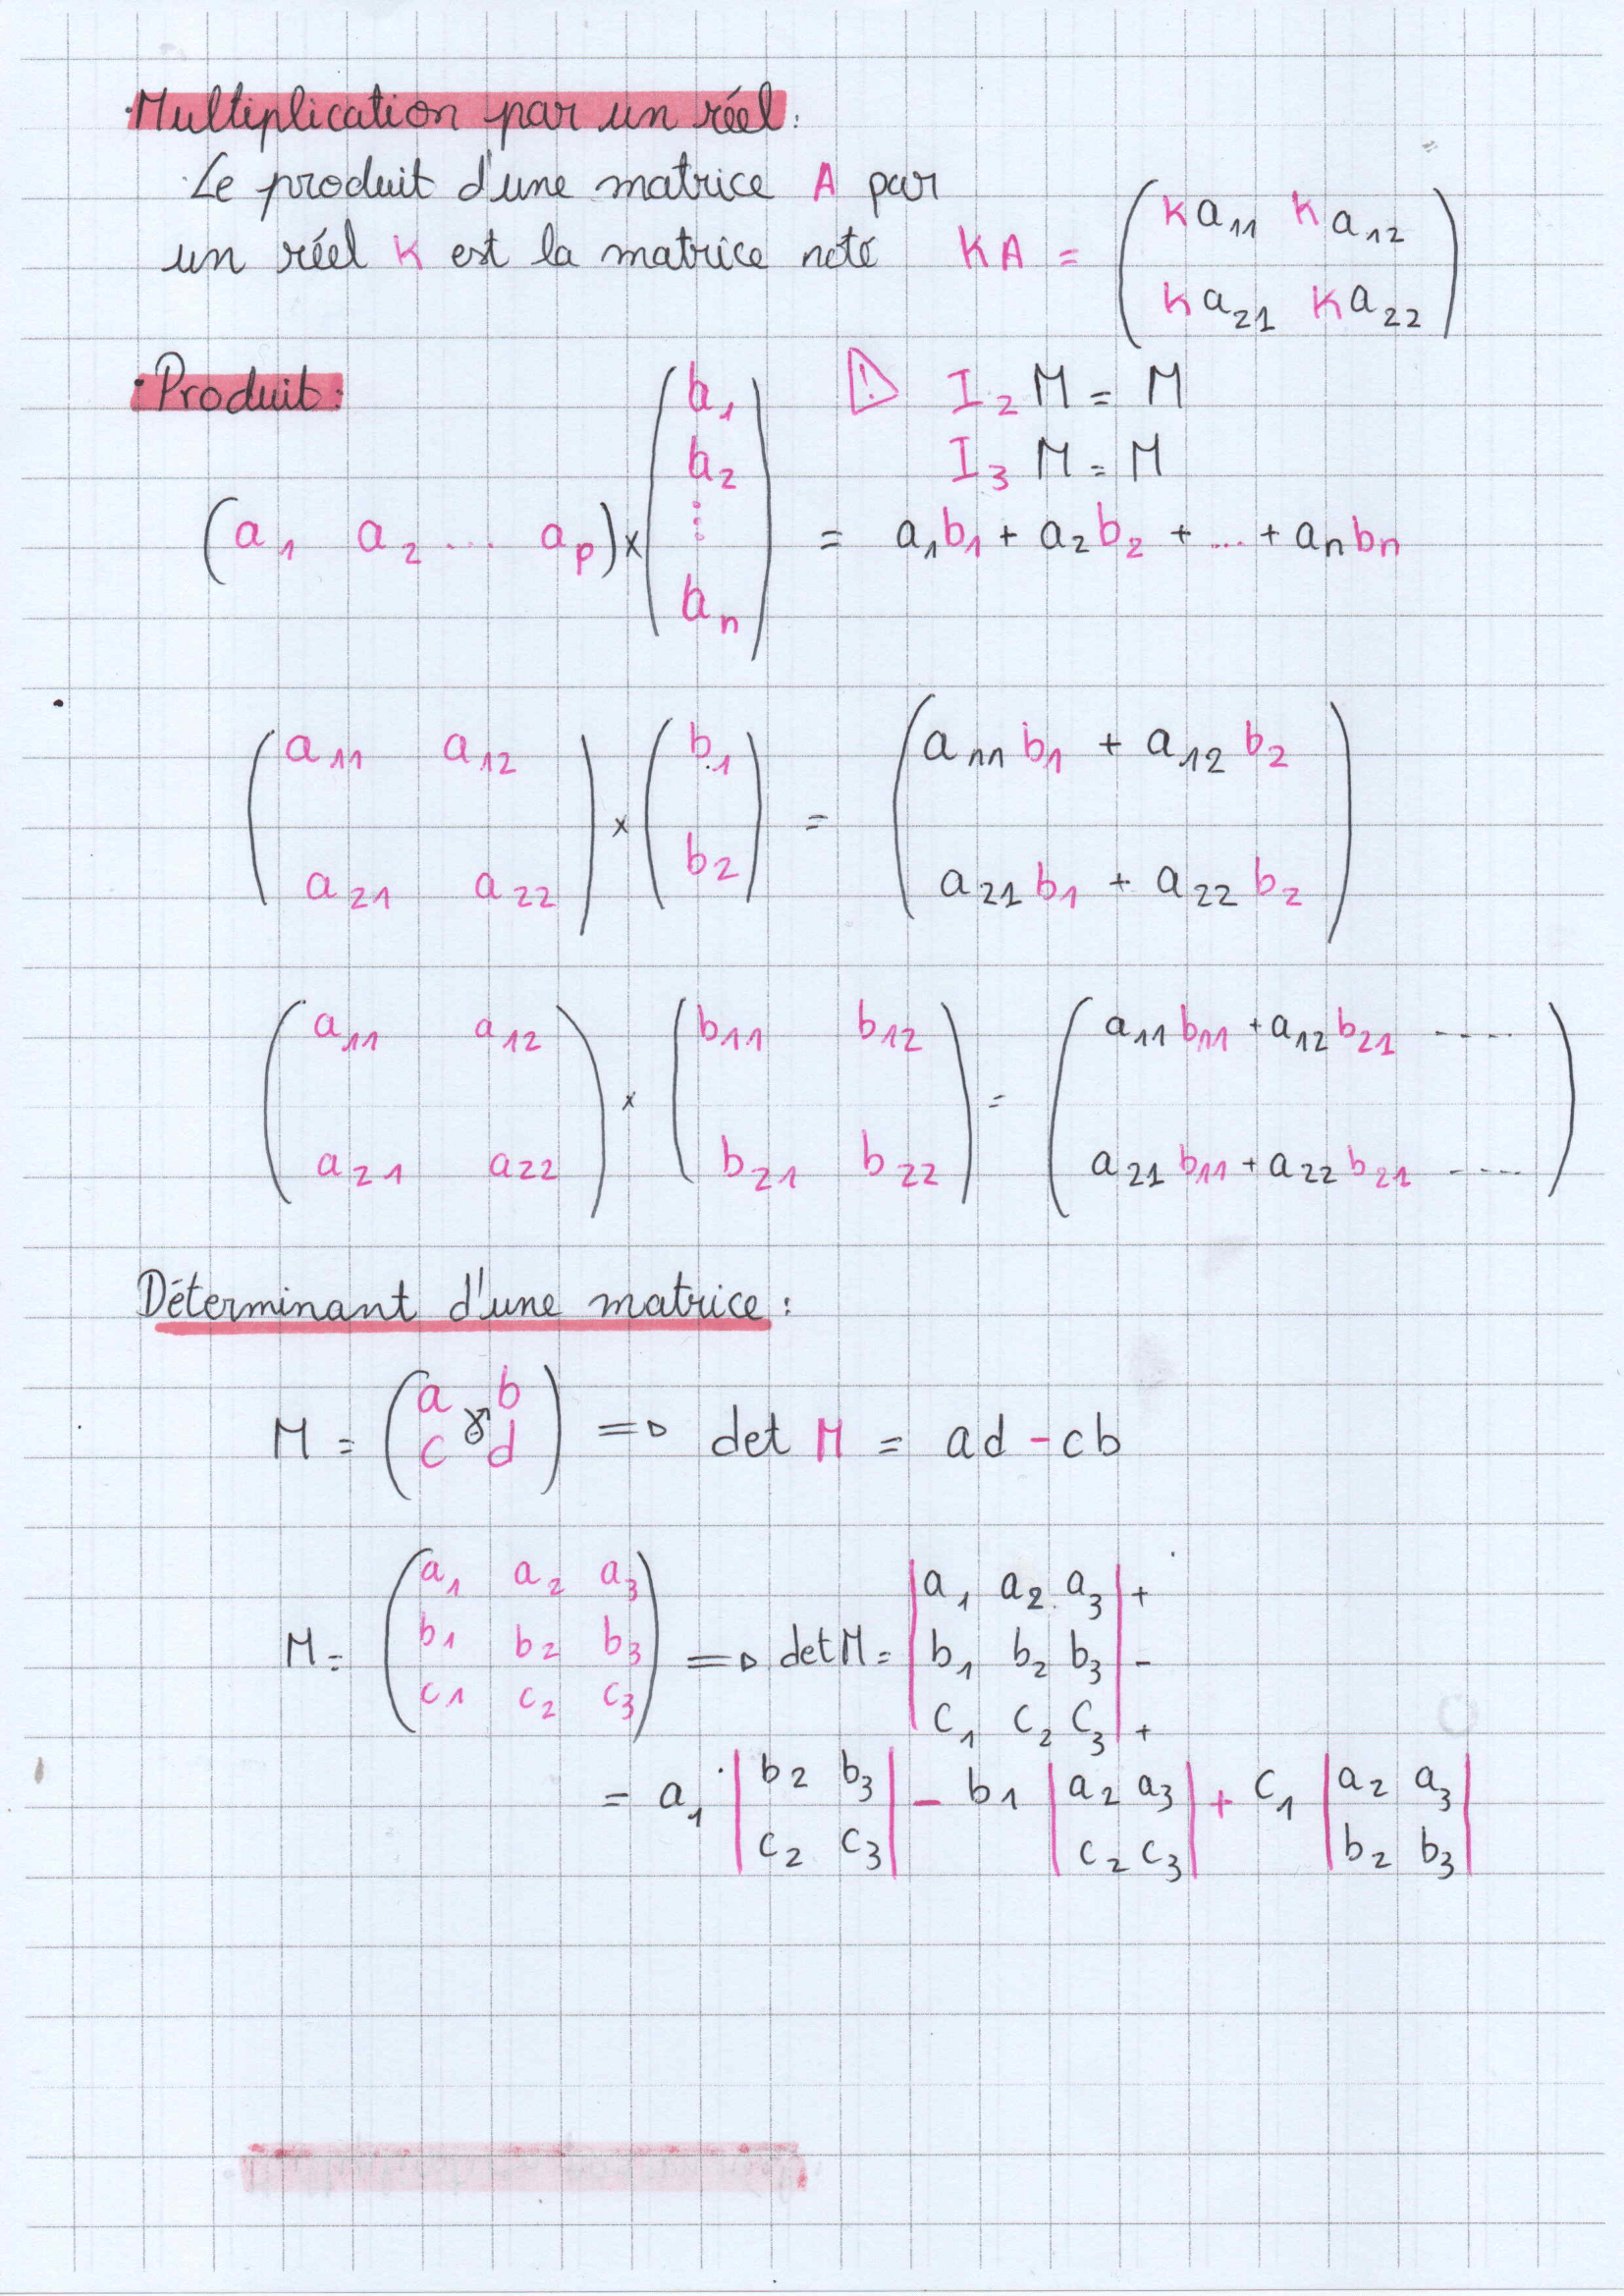 • Multiplication par un réel :
• Le produit d'une matrice A par
un réel K est la matrice noté KA = ( Ka₁₁ Ka₁₂
Ka₂₁ Ka₂₂ )
• Produit :
⚠ I₂ M = M
I₃ M = M
( a₁ a₂ ... aₚ ) × ( b₁
b₂
⋮
bₙ ) = a₁b₁ + a₂b₂ + ... + aₙbₙ
( a₁₁ a₁₂
a₂₁ a₂₂ ) × ( b₁
b₂ ) = ( a₁₁b₁ + a₁₂b₂
a₂₁b₁ + a₂₂b₂ )
( a₁₁ a₁₂
a₂₁ a₂₂ ) × ( b₁₁ b₁₂
b₂₁ b₂₂ ) = ( a₁₁b₁₁ + a₁₂b₂₁ .....
a₂₁b₁₁ + a₂₂b₂₁ ..... )
Déterminant d'une matrice :
M = ( a b
c d ) => det M = ad - cb
M = ( a₁ a₂ a₃
b₁ b₂ b₃
c₁ c₂ c₃ ) => det M = | a₁ a₂ a₃ | +
| b₁ b₂ b₃ | -
| c₁ c₂ c₃ | +
= a₁ | b₂ b₃
c₂ c₃ | - b₁ | a₂ a₃
c₂ c₃ | + c₁ | a₂ a₃
b₂ b₃ |